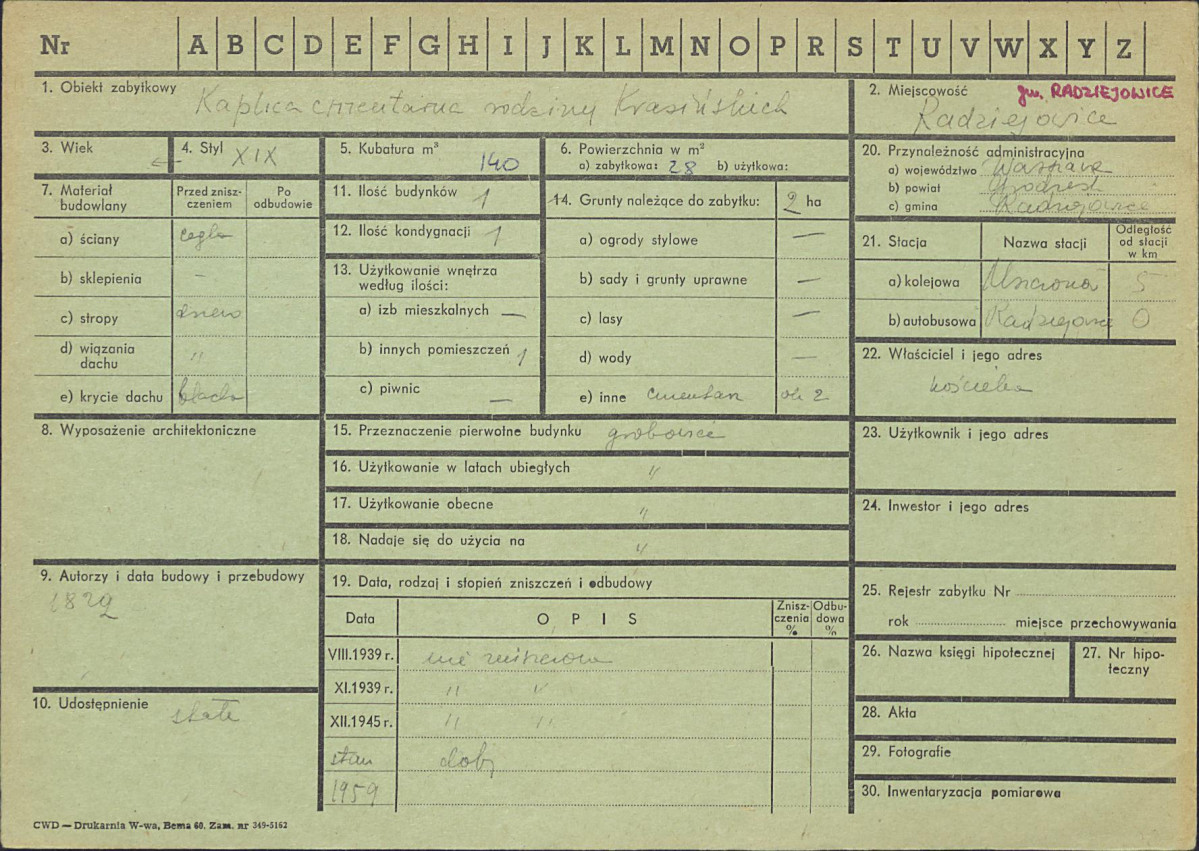 Nr A B C D E F G H I J K L M N O P R S T U V W X Y Z
1. Obiekt zabytkowy
Kaplica cmentarna rodziny Krasińskich
2. Miejscowość gm. RADZIEJOWICE
Radziejowice
3. Wiek
4. Styl XIX
5. Kubatura m³ 140
6. Powierzchnia w m²
a) zabytkowa: 28 b) użytkowa:
7. Materiał budowlany
Przed zniszczeniem
Po odbudowie
a) ściany cegła
b) sklepienia –
c) stropy drewn
d) wiązania dachu "
e) krycie dachu blacha
8. Wyposażenie architektoniczne
9. Autorzy i data budowy i przebudowy
10. Udostępnienie
stałe
11. Ilość budynków 1
12. Ilość kondygnacji 1
13. Użytkowanie wnętrza
według ilości:
a) izb mieszkalnych —
b) innych pomieszczeń 1
c) piwnic —
14. Grunty należące do zabytku: 2 ha
a) ogrody stylowe —
b) sady i grunty uprawne —
c) lasy —
d) wody —
e) inne cmentarz ok 2
15. Przeznaczenie pierwotne budynku grobowiec
16. Użytkowanie w latach ubiegłych "
17. Użytkowanie obecne "
18. Nadaje się do użycia na "
19. Data, rodzaj i stopień zniszczeń i odbudowy
Data O P I S Zniszczenia % Odbudowa %
VIII.1939 r. nie zniszczona
XI.1939 r. " "
XII.1945 r. " "
stan dobry
1959
20. Przynależność administracyjna
a) województwo Warszawa
b) powiat Grodzisk
c) gmina Radziejowice
21. Stacja
Nazwa stacji
Odległość od stacji w km
a) kolejowa Mszczonów 5
b) autobusowa Radziejowice 0
22. Właściciel i jego adres
kościelna
23. Użytkownik i jego adres
24. Inwestor i jego adres
25. Rejestr zabytku Nr
rok miejsce przechowywania
26. Nazwa księgi hipotecznej
27. Nr hipoteczny
28. Akta
29. Fotografie
30. Inwentaryzacja pomiarowa
CWD — Drukarnia W-wa, Bema 60. Zam. nr 349-5162